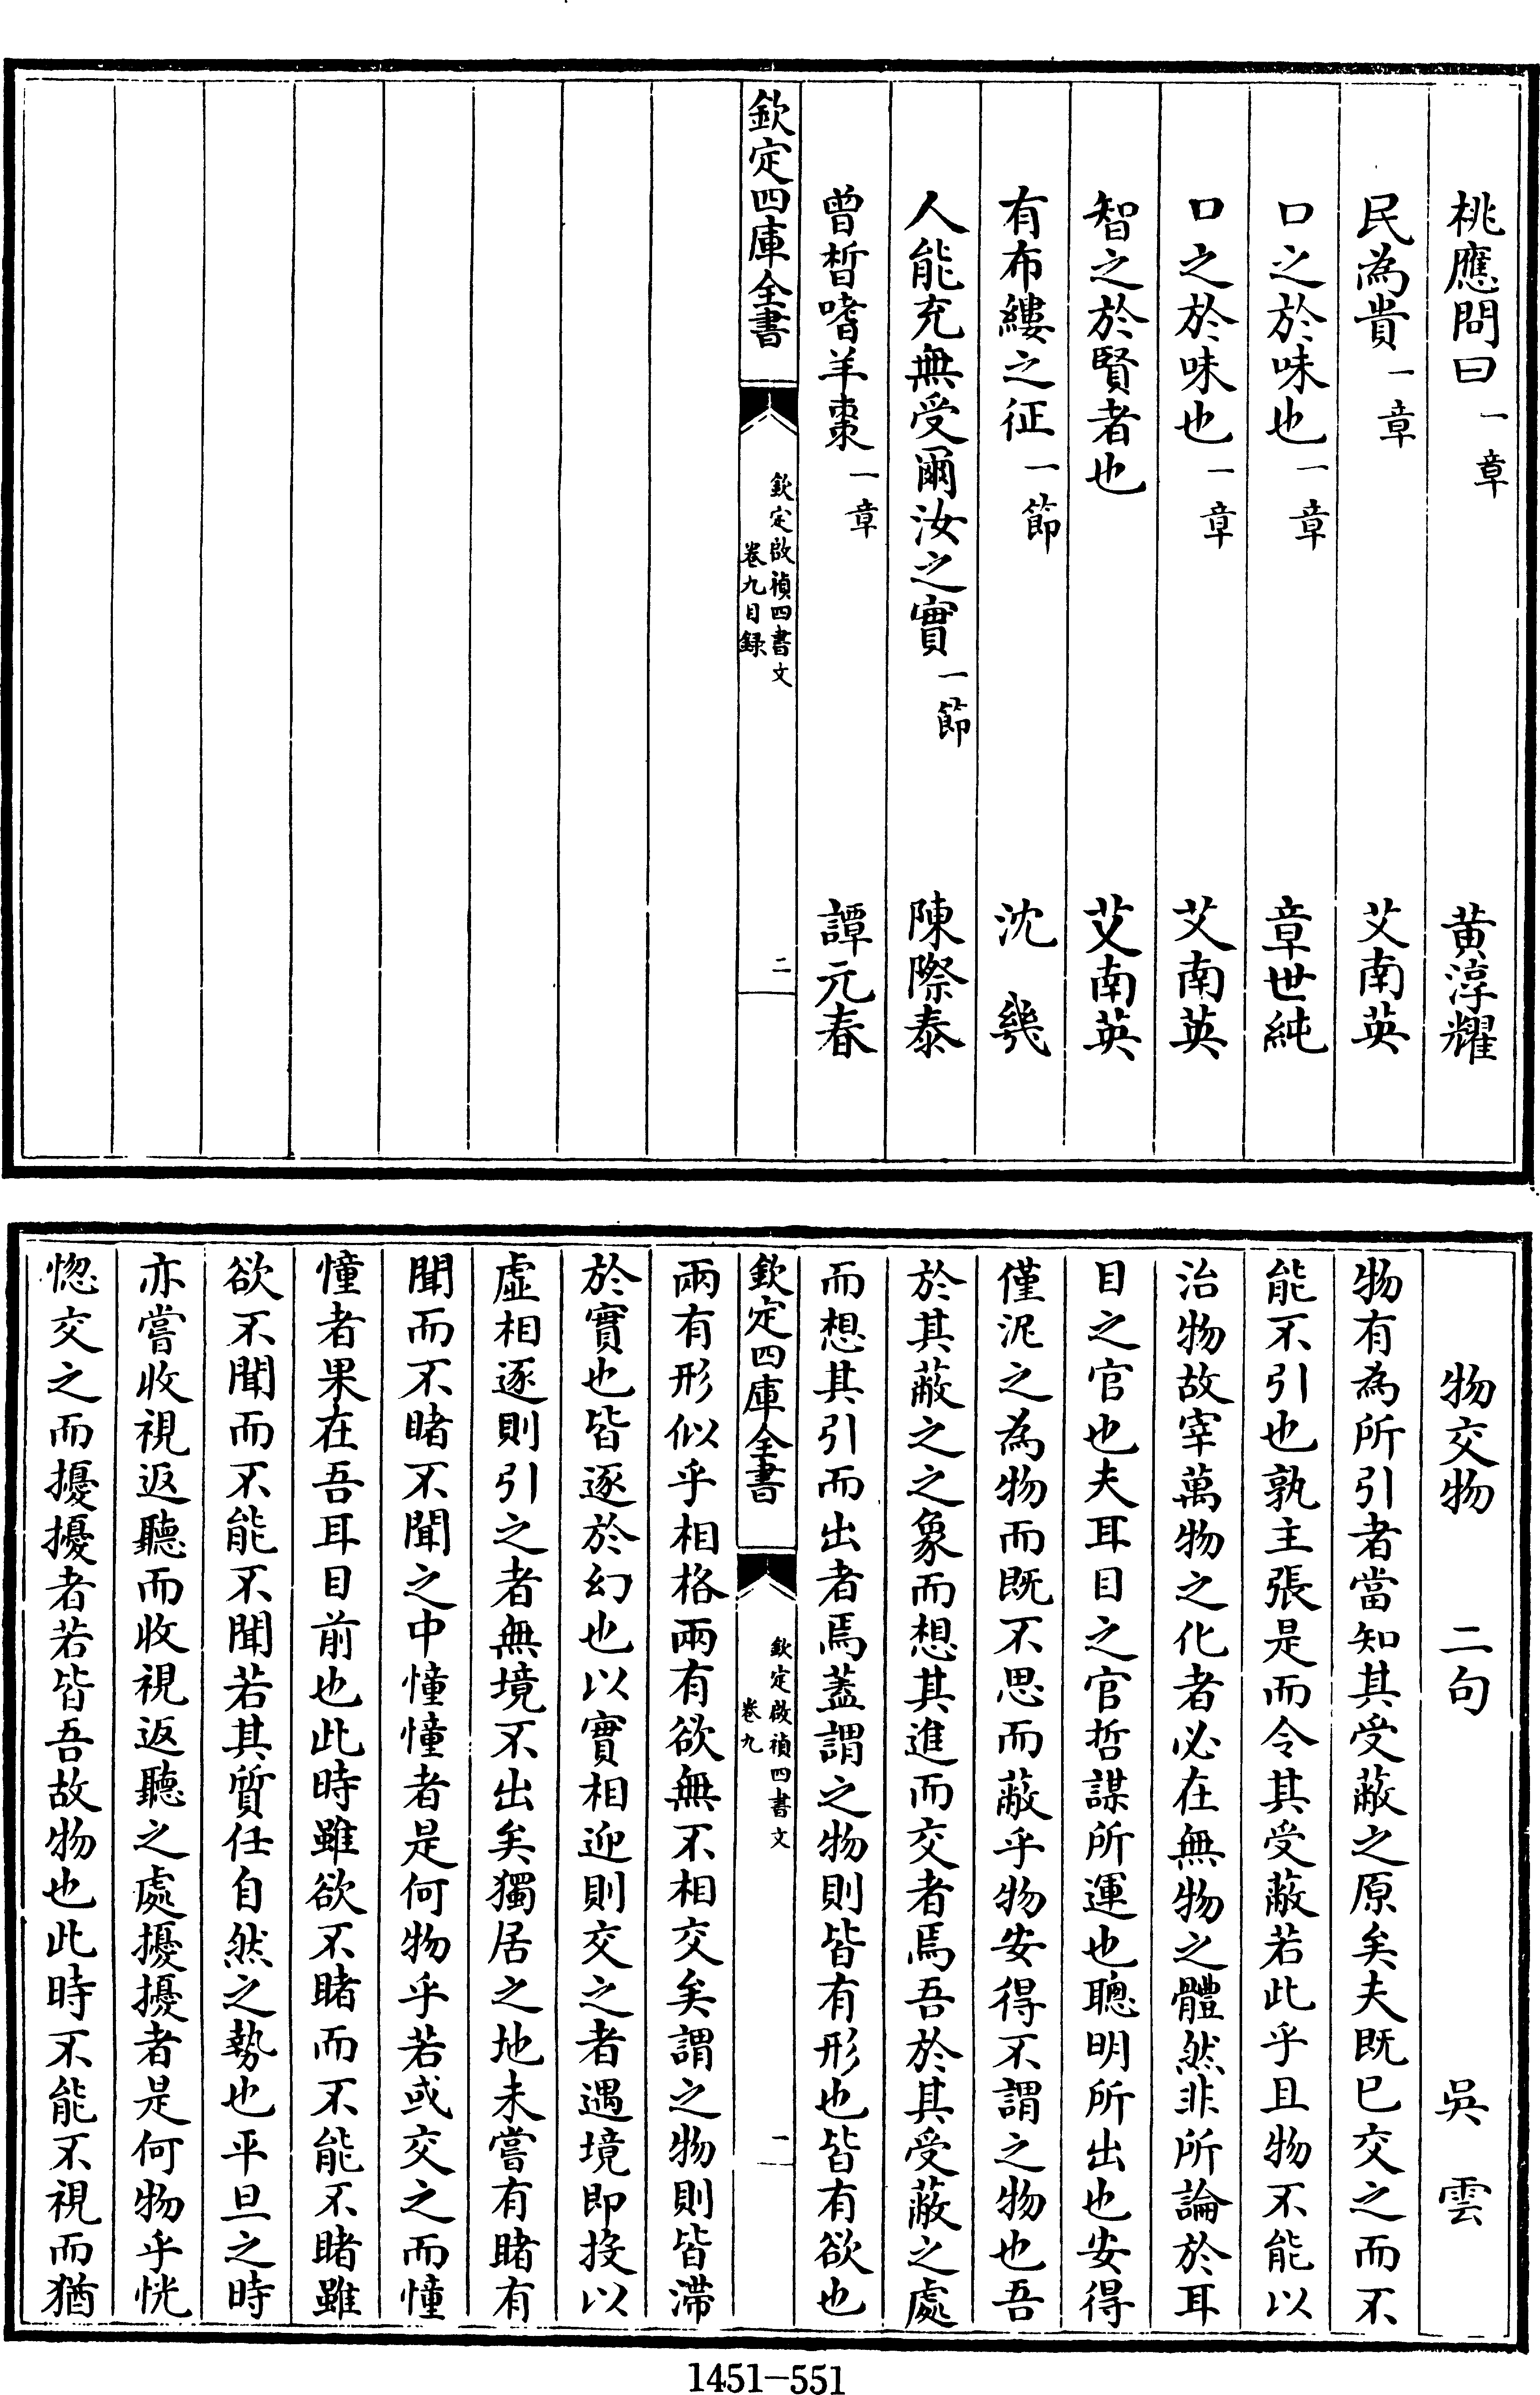 桃應問曰一章 黄淳耀
民為貴一章 艾南英
口之於味也一章 章世純
口之於味也一章 艾南英
智之於賢者也 艾南英
有布縷之征一節 沈㡬
人能充無受爾汝之實一節 陳際泰
曾晳嗜羊棗一章 譚元春
欽定四庫全書
欽定啟禎四書文
卷九目録
二
物交物 二句 吳雲
物有為所引者當知其受蔽之原矣夫既已交之而不
能不引也孰主張是而令其受蔽若此乎且物不能以
治物故宰萬物之化者必在無物之體然非所論於耳
目之官也夫耳目之官哲謀所運也聰明所出也安得
僅泥之為物而既不思而蔽乎物安得不謂之物也吾
於其蔽之之象而想其進而交者焉吾於其受蔽之處
而想其引而出者焉蓋謂之物則皆有形也皆有欲也
欽定四庫全書
欽定啟禎四書文
卷九
一
兩有形似乎相格兩有欲無不相交矣謂之物則皆滯
於實也皆逐於幻也以實相迎則交之者遇境即投以
虛相逐則引之者無境不出矣獨居之地未嘗有睹有
聞而不睹不聞之中憧憧者是何物乎若或交之而憧
憧者果在吾耳目前也此時雖欲不睹而不能不睹雖
欲不聞而不能不聞若其質任自然之勢也平旦之時
亦嘗收視返聽而收視返聽之處擾擾者是何物乎恍
惚交之而擾擾者若皆吾故物也此時不能不視而猶
1451-551